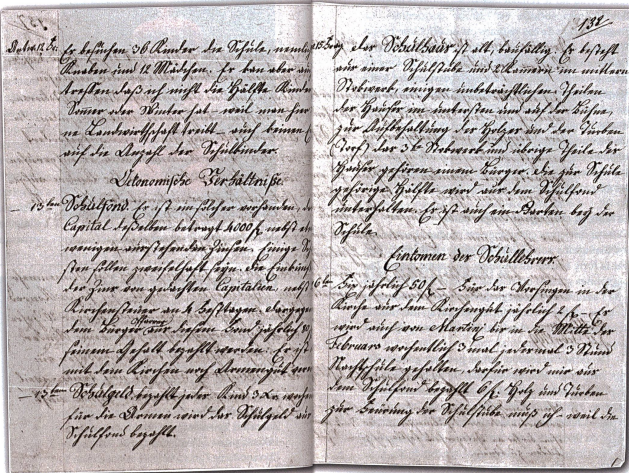 Es besuchen 36 Kinder die Schule, nemlich
Knaben und 12 Mädchen. Er kan aber
treffen daß ich nicht die Hälfte Kinder
Somer der Winter hat – weil man hier
ne Landwirtschaft treibt – auch
auf die Anzahl der Schulkinder.
Oekonomische Verhältniße.
– 13ten Schulfond. Er ist ein solcher vorhanden,
Capital deßelben betragt 4000 f. nebst
wenigen ausstehenden Zinsen. Einige
sten sollen zweifelhaft seyn. Die
der Zins von gedachten Capitalien, nebst
Kirchensteuer an 4 Festtagen. Dargegen
dem Bürger Pfarrer aus diesem Fond jährlich
seinem Gehalt bezahlt werden. Er ist
mit dem Kirchen noch Armengut
– Schulgeld bezahlt jedes Kind 3 Kr.
für die Armen wird das Schulgeld aus
Schulfond bezahlt.
132
15. Das Schulhaus ist alt, baufällig. Es besteht
aus einer Schulstube und 2 Kamern im mittlern
Stokwerk, einigen unbeträchtlichen Theilen
des Hauses im untersten und auf der Bühne,
zur Aufbehaltung des Holzes und der Turben
(Torf) das 3te Stokwerk und übrige Theile des
Hauses gehören einem Bürger. Die zur Schule
gehörige Hälfte wird aus dem Schulfond
unterhalten. Es ist auch ein Garten bey der
Schule.
Einkomen des Schullehrers.
16ten Fix jährlich 50 f. – Für das Vorsingen in der
Kirche aus dem Kirchengut jährlich 2 f. – Er
wird auch von Martini bis in die Mitte des
Februars wochentlich 3 mal jedesmal 3 Stund
Nachtschule gehalten, dafür wird mir aus
dem Schulfond bezahlt 6 f. Holz und Turben
zur Heizung der Schulstube muß ich – weil die